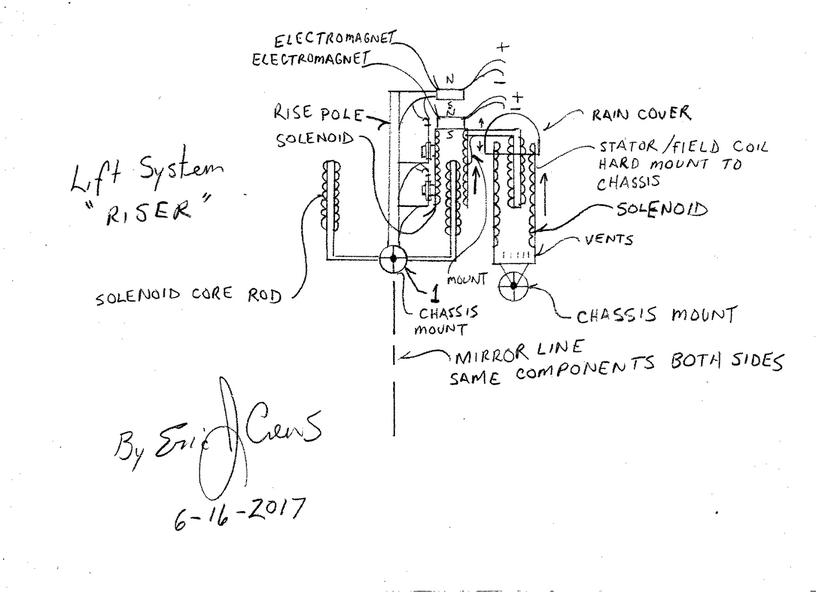 ELECTROMAGNET
ELECTROMAGNET
+
-
N
S
N
S
+
-
RISE POLE
SOLENOID
RAIN COVER
STATOR/FIELD COIL
HARD MOUNT TO
CHASSIS
Lift System
"RISER"
SOLENOID
VENTS
MOUNT
SOLENOID CORE ROD
1
CHASSIS
MOUNT
CHASSIS MOUNT
MIRROR LINE
SAME COMPONENTS BOTH SIDES
By Eric J Crews
6-16-2017